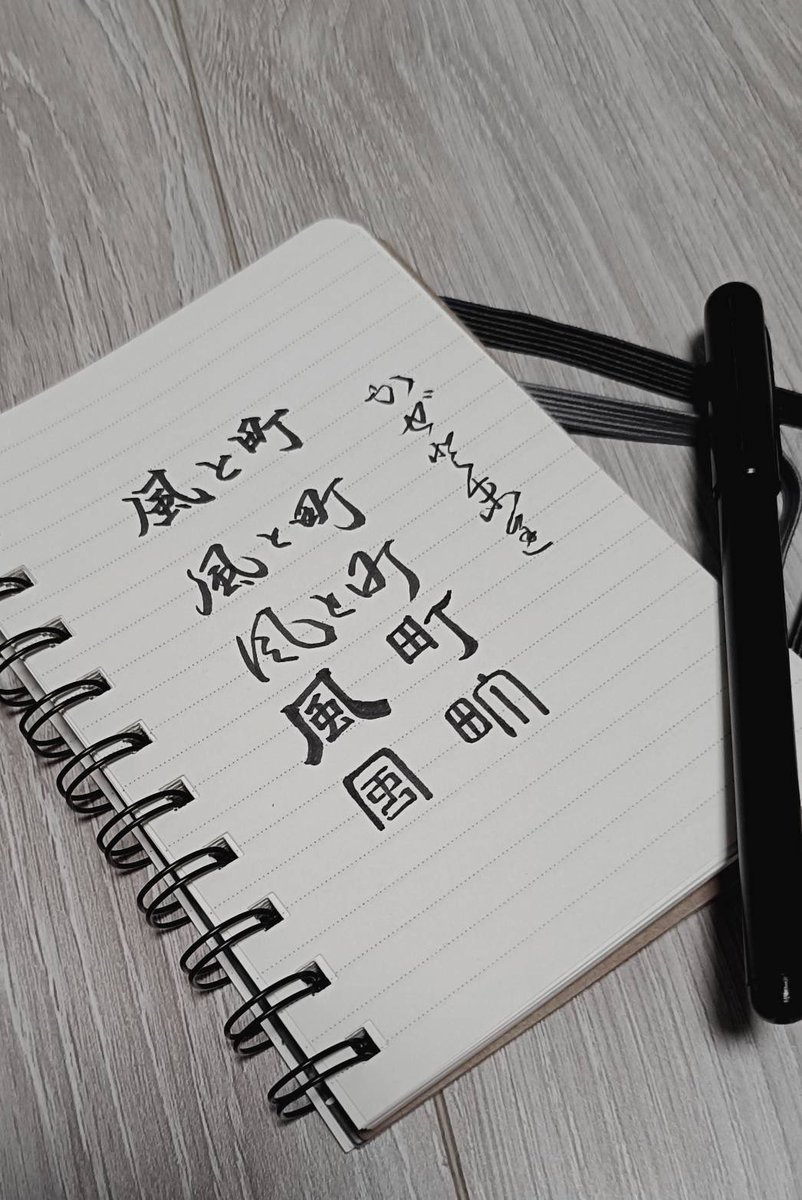 風と町
風と町
風と町
風 町
風 町
かぜとまち